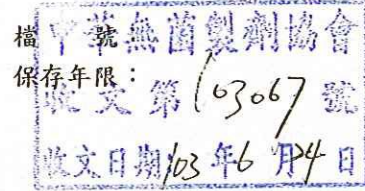 檔號：
保存年限：
中華無菌製劑協會
收文第103067號
收文日期103年6月24日